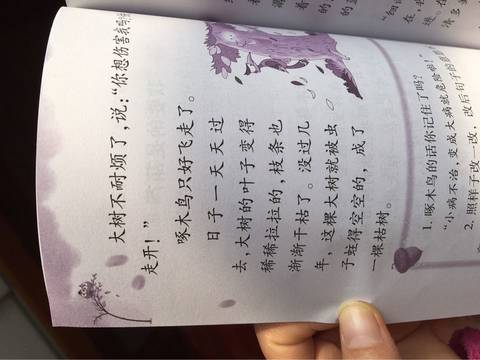 大树不耐烦了，说：“你想伤害我
走开！”
啄木鸟只好飞走了。
日子一天天过
去，大树的叶子变得
稀稀拉拉的，枝条也
渐渐干枯了。没过几
年，这棵大树就被虫
子蛀得空空的，成了
一棵枯树。
1. 啄木鸟的话你记住了吗？
“小病不治，变成大病就危险啦！”
2. 照样子改一改，改后句子的